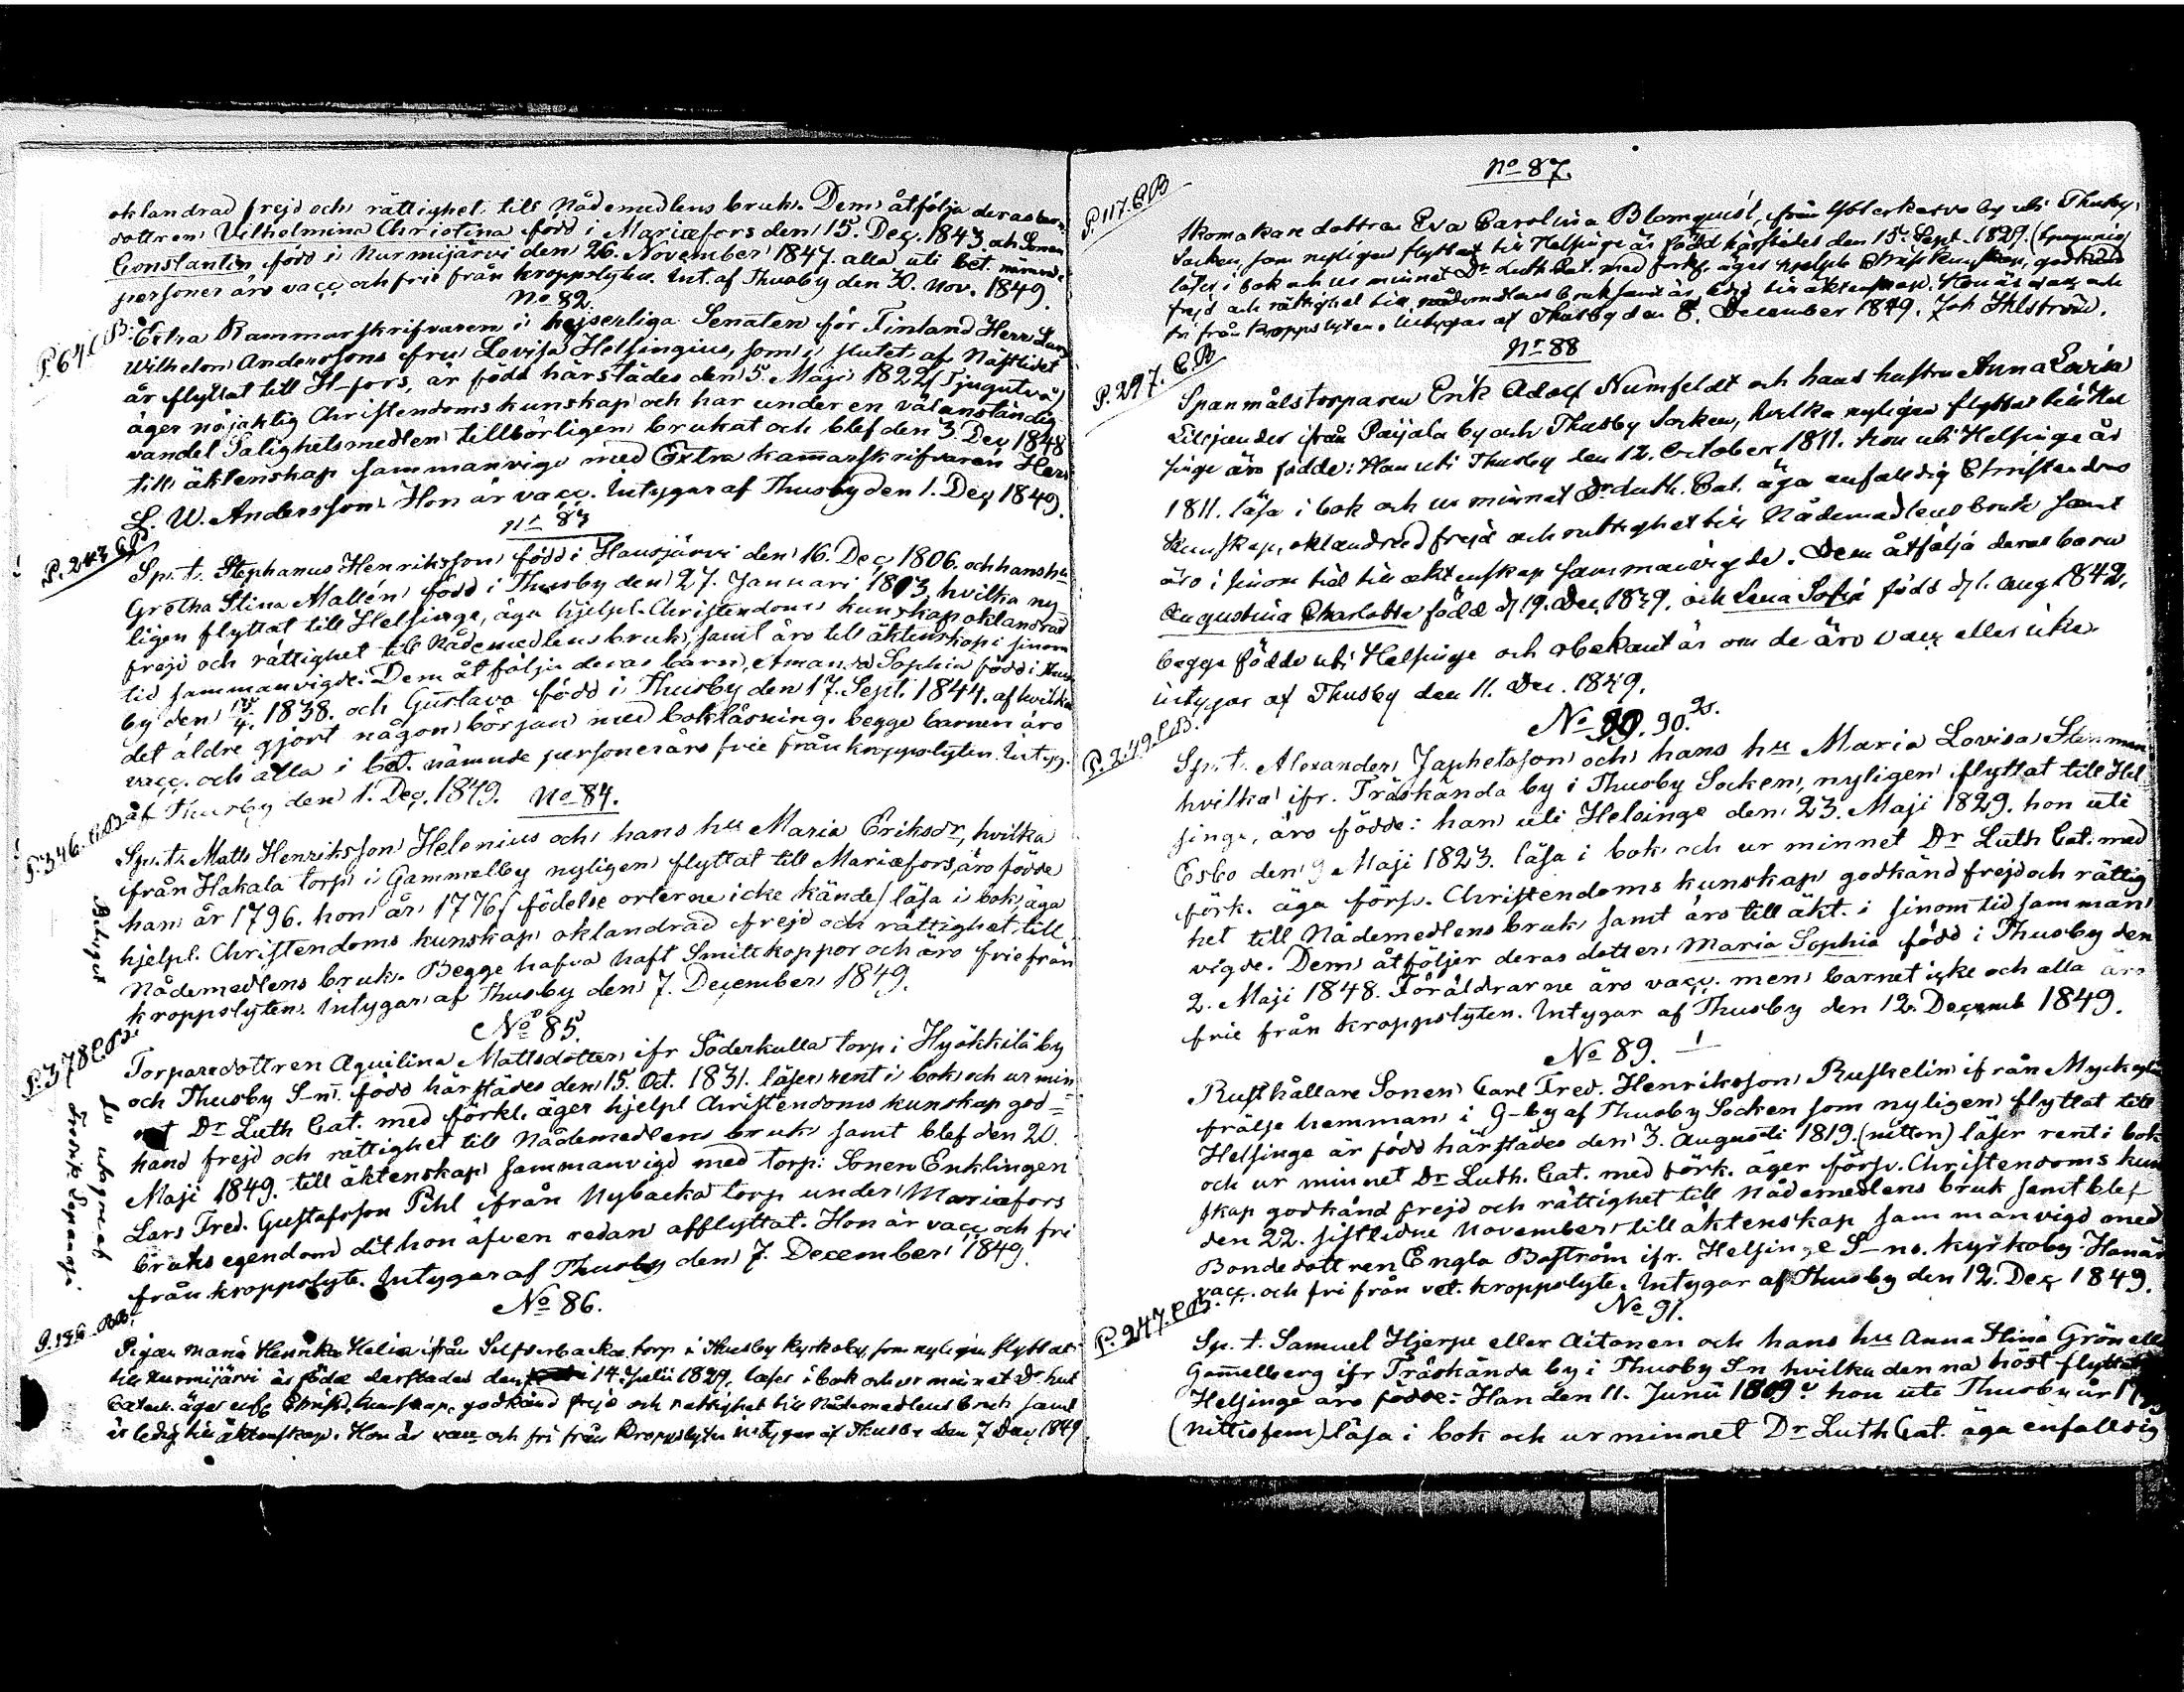 oklandrad frejd och rättighet till Nådemedlens bruk. Dem åtfölja deras barn
dottren Vilhelmina Christina född i Mariæfors den 15. Deç. 1843 och Sonen
Constantin född i Nurmijärvi den 26. November 1847. alla uti bet. nämnde
personer äro vacç och frie från kroppslyten. Int. af Thusby den 30. Nov. 1849.
No 82.
P. 64. C.B.
Extra Kammarskrifvaren i kejserliga Senaten för Finland Herr Lars
Wilhelm Anderssons fru Lovisa Helsingius, som i slutet af Nästlidet
år flyttat till H-fors, är född härstädes den 5. Maji 1822 (Tjugutvå)
äger nöjaktig Christendoms kunskap och har under en välanständig
vandel Salighetsmedlen tillbörligen brukat och blef den 3. Deç 1848
till äktenskap sammanvigd med Extra kamarskrifvaren Herr
L. W. Andersson. Hon är vacç. Intygar af Thusby den 1. Deç 1849.
No 83
P. 243 C.B.
Sp. t. Stephanus Henriksson född i Hausjärvi den 16. Deç 1806. och hans hu
Gretha Stina Mallén född i Thusby den 27. Januari 1803, hvilka ny-
ligen flyttat till Helsinge, äga hjelpl. Christendoms kunskap oklandrad
frejd och rättighet till Nådemedlens bruk, samt äro till äktenskap i sinom
tid sammanvigde. Dem åtfölja deras barn, Amanda Sophia född i Thus
by den 1838. och Gustava född i Thusby den 17. Sept. 1844. af hvilka
det äldre gjort någon början med bokläsning. begge barnen äro
vacç. och alla i bet. nämnde personer äro frie från kroppslyten. Intyg.
af Thusby den 1. Deç. 1849. No 84.
P. 346. C.B.
Sp. t. Matts Henriksson Helenius och hans hu Maria Eriksdr, hvilka
från Hakala torp i Gammelby nyligen flyttat till Mariæfors, äro födde
han år 1796. hon år 1776 (födelse orterne icke kände) läsa i bok, äga
hjelpl. Christendoms kunskap oklandrad frejd och rättighet till
Nådemedlens bruk. Begge hafva haft Smittkoppor och äro frie från
kroppslyten. Intygar af Thusby den 7. December 1849.
Betyget
No 85.
P. 378 C.B.
Torparedottren Aquilina Mattsdotter ifr Söderkulla torp i Hyökkilä by
och Thusby S-n. född härstädes den 15. Oct. 1831. läser rent i bok och ur min-
net Dr Luth Cat. med förkl. äger hjelpl Christendoms kunskap god=
känd frejd och rättighet till Nådemedlens bruk samt blef den 20.
Maji 1849. till äktenskap sammanvigd med torp: Sonen Enklingen
Lars Fred. Gustafsson Pihl ifrån Nybacka torp under Mariæfors
bruks egendom dit hon äfven redan afflyttat. Hon är vacç och fri
från kroppslyte. Intygar af Thusby den 7. December 1849.
No 86.
Pigan Maria Henrika Helin ifrån Silfverbacka torp i Thusby Kyrkoby, som nyligen flyttat
till Nurmijärvi är född derstädes den 14. Julii 1829. läser i bok och ur minnet Dr Lut
Catech. äger enf. Christd. kunskap, godkänd frejd och rättighet till Nådemedlens bruk samt
är ledig till äktenskap. Hon är vacc och fri från kroppslyten intygar af Thusby den 7 Dec 1849
No 87.
P. 117. C.B.
Skomakare dottren Eva Carolina Blomquist, från by uti Thusby
Socken, som nyligen flyttat till Helsinge är född härstädes den 15 Sept. 1829.
läser i bok och ur minnet Dr Luth Cat. med förkl. äger hjelpl. Christ. kunskap, godkänd
frejd och rättighet till nådemedlens bruk samt är ledig till äktenskap. Hon är vacc och
fri från kroppslyten. Intygar af Thusby den 8. December 1849. Joh Ihlström.
No 88
P. 297. C.B.
Spanmålstorparen Erik Adolf Numfeldt och hans hustru Anna Lovisa
Liljander ifrån Paijala by och Thusby Socken, hvilka nyligen flyttat till Hel
singe äro födde: Han uti Thusby den 12. October 1811. hon uti Helsinge år
1811. läsa i bok och ur minnet Dr Luth. Cat. äga enfaldig Christendoms
kunskap, oklandrad frejd och rättighet till Nådemedlens bruk samt
äro i sinom tid till äktenskap sammanvigde. Dem åtfölja deras barn
Augustina Charlotta född d. 9. Dec 1839. och Lena Sofia född d. 1. Aug 1842.
begge födde uti Helsinge och obekant är om de äro vacc eller icke.
intygar af Thusby den 11. Dec. 1849.
No 90.
P. 249. C.B.
Sp. t. Alexander Japhetsson och hans hu Maria Lovisa Stenman
hvilka ifr. Träskända by i Thusby Socken, nyligen flyttat till Hel
singe, äro födde: han uti Helsinge den 23. Maji 1829. hon uti
Esbo den 9 Maji 1823. läsa i bok och ur minnet Dr Luth Cat. med
förk. äga försv. Christendoms kunskap godkänd frejd och rättig
het till Nådemedlens bruk samt äro till äkt. i sinom tid samman
vigde. Dem åtföljer deras dotter Maria Sophia född i Thusby den
2. Maji 1848. Föräldrarne äro vacç. men barnet icke och alla äro
frie från kroppslyten. Intygar af Thusby den 12. Decemb 1849.
No 89.
Rusthållare Sonen Carl Fred. Henriksson Ruskelin ifrån
frälse hemman i G-by af Thusby Socken som nyligen flyttat till
Helsinge är född härstädes den 3. Augusti 1819. (nitton) läser rent i bok
och ur minnet Dr Luth. Cat. med förk. äger försv. Christendoms kun
skap godkänd frejd och rättighet till Nådemedlens bruk samt blef
den 22. sistledne November till äktenskap sammanvigd med
Bondedottren Engla Boström ifr. Helsinge S-ns. Kyrkoby. Han är
vacc. och fri från vet. kroppslyte. Intygar af Thusby den 12. Deç 1849.
No 91.
P. 247. C.B.
Sp. t. Samuel Hjerpe eller Aitonen och hans hu Anna Stina Grön eller
Gamelberg ifr Träskända by i Thusby S-n hvilka denna höst flyttat
Helsinge äro födde: Han den 11. Junii 1809. hon uti Thusby år
(nittiofem) läsa i bok och ur minnet Dr Luth Cat. äga enfaldig